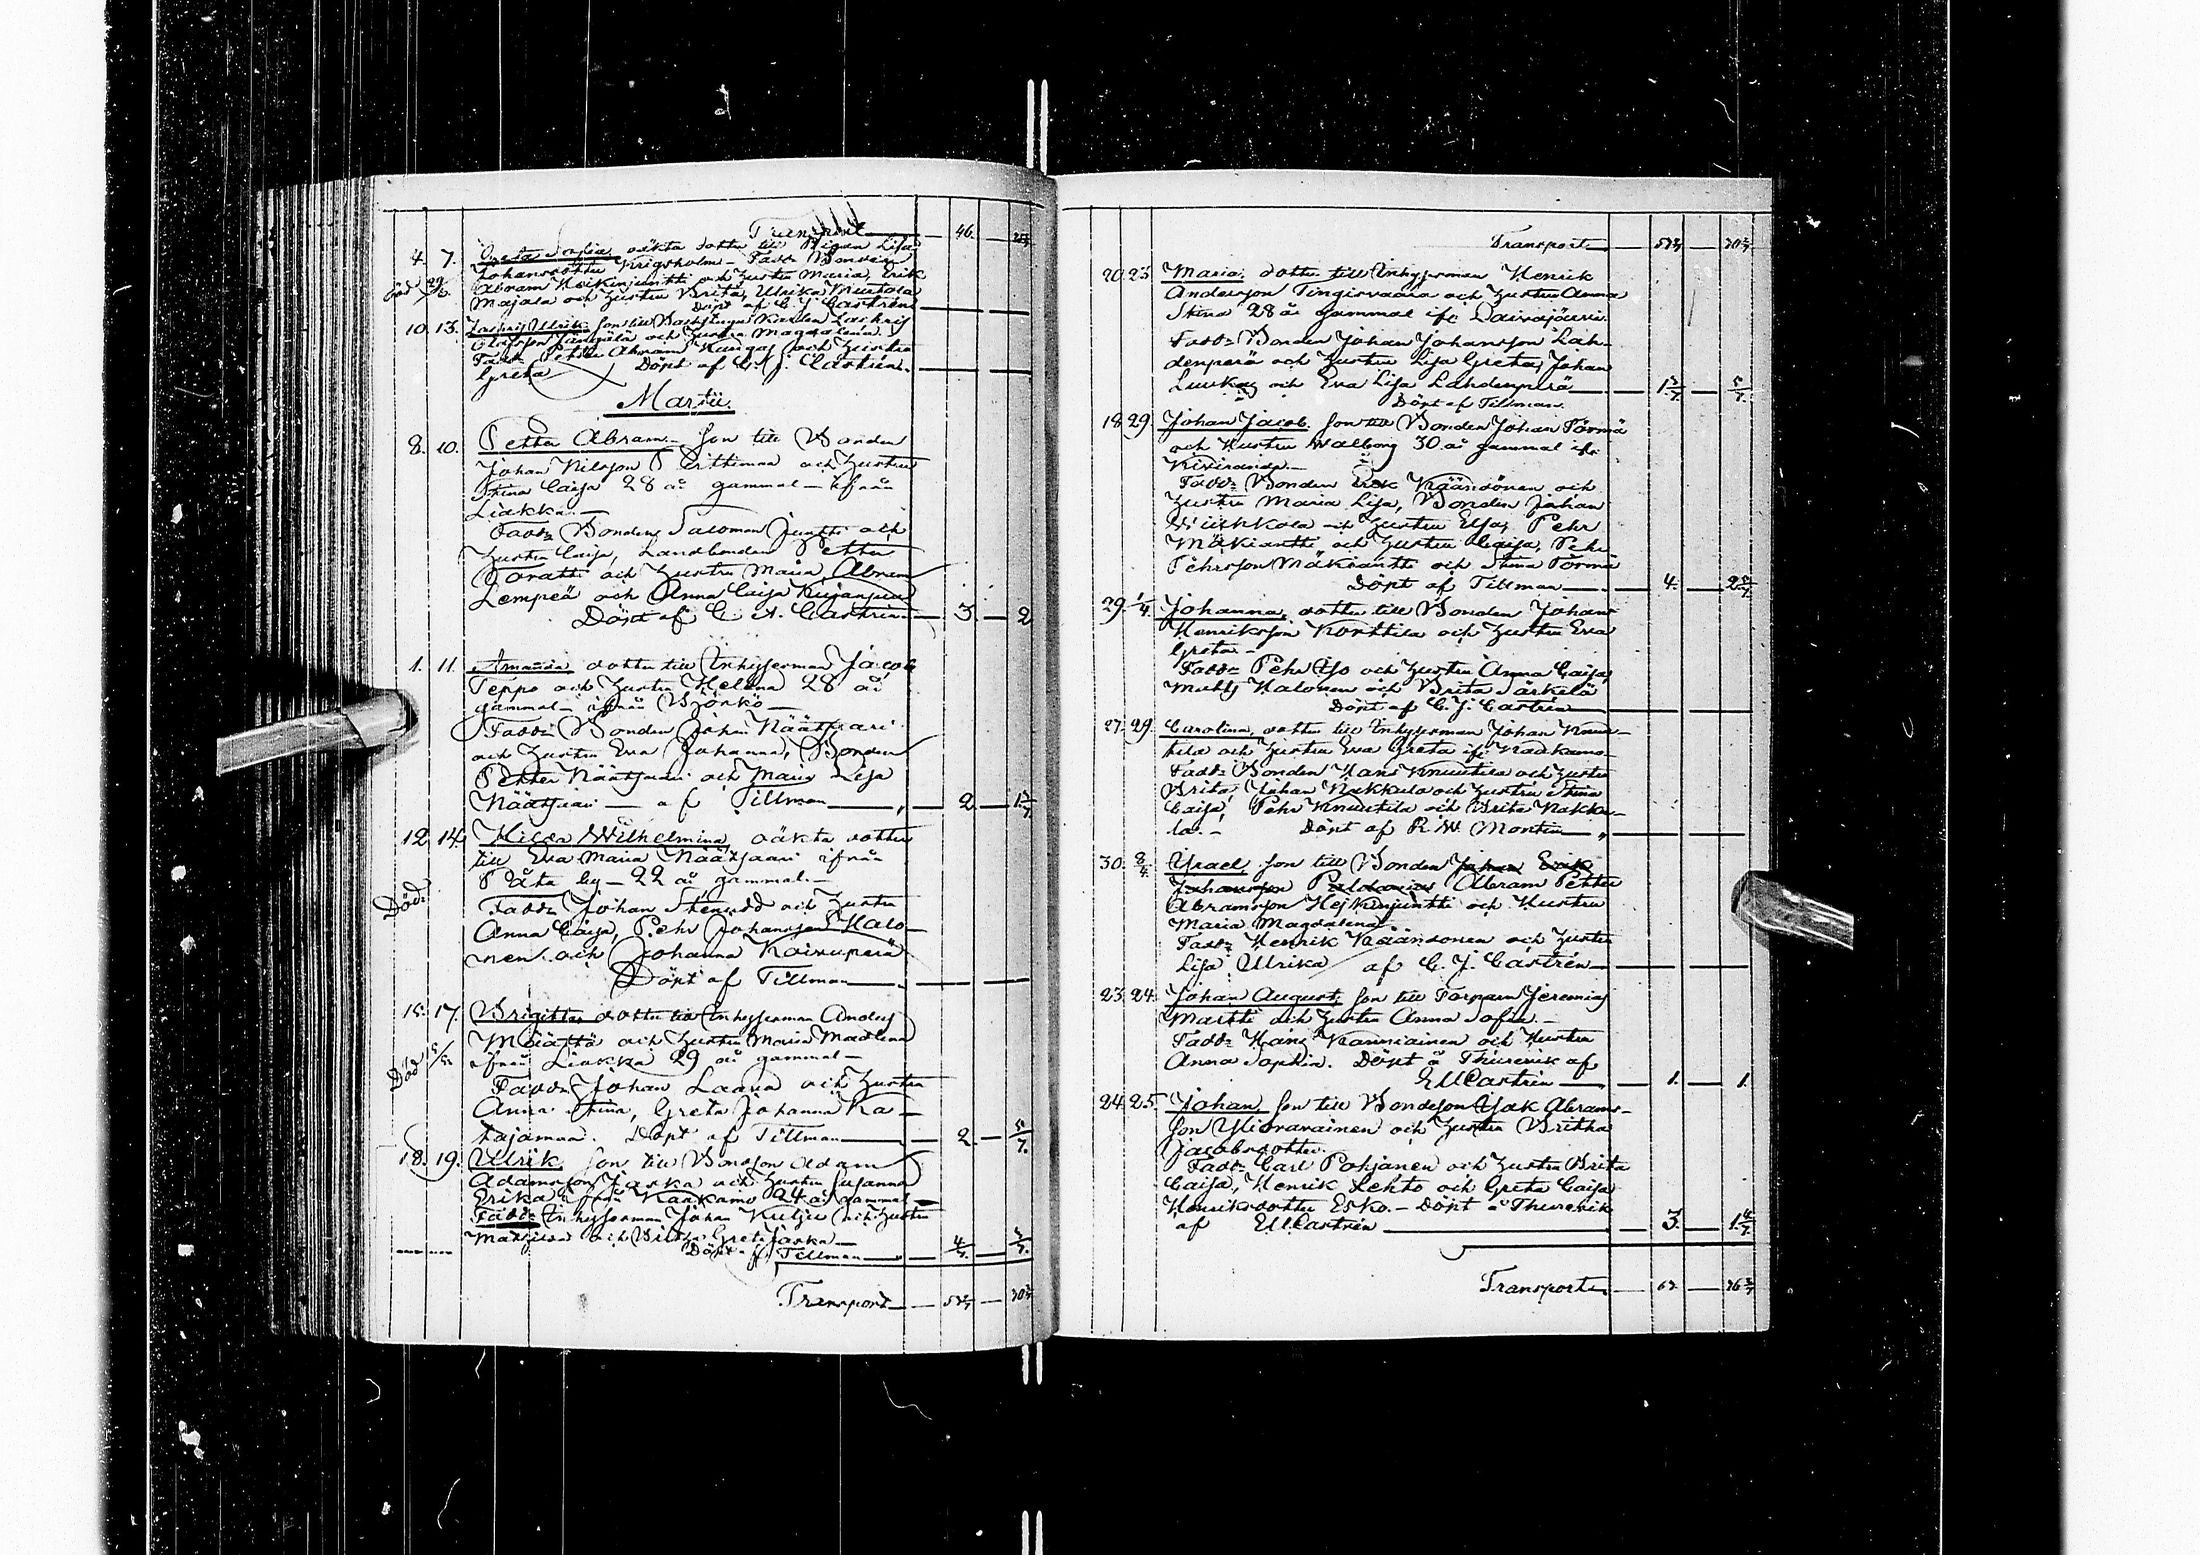 Transport 46.
4. 7. Greta Sofia, oäkta dotter till Pigan Lisa
Johansdotter Krigsholm - Fadd: Bonden
Död 29/3 Abram Heikinjuntti och hustru Maria, Erik
Majala och hustru Brita, Ulrika
Döpt af C. J. Castrén
10. 13. Zachris Ulrik son till Zachris
och hustru Magdalena.
Fadd: Petter Abram Kangas och hustru
Greta Döpt af C. J. Castrén.
Martii.
8. 10. Petter Abram son till Bonden
Johan Nilsson Perttimaa och hustru
Stina Caisa 28 år gammal - ifrån
Liakka.
Fadd: Bonden Salomon Juntti och
hustru Caisa, Landbonden Petter
och hustru Maria, Abram
Lempeä och Anna Caisa
Döpt af C. A. Castrén 3. 2
1. 11. Amanda dotter till Inhysesman Jacob
Teppo och hustru Helena 28 år
gammal - ifrån Björkö
Fadd: Bonden Johan Näätsaari
och hustru Eva Johanna, Bonden
Petter Näätsaari och Maria Lisa
Näätsaari - af Tillman 2
12. 14. Hilda Wilhelmina, oäkta dotter
till Eva Maria Näätsaari ifrån
Präta by - 22 år gammal.
Död. Fadd: Johan Stenudd och hustru
Anna Caisa, Pehr Johansson Halo-
nen och Johanna Koivuperä
Döpt af Tillman
15. 17. Brigitta dotter till Inhysesman Anders
och hustru Maria Madlena
Död ifrån Liakka 29 år gammal
Fadd: Johan Laaria och hustru
Anna Stina, Greta Johanna Ka-
tajamaa. Döpt af Tillman 2. 5/7.
18. 19. Ulrik son till Bondson Adam
Adamsson Jaska och hustru Susanna
Erika ifrån Kaakamo 24 år gammal
Fadd: Inhysesman Johan och hustru
Mathilda och Britha Greta Jaska
Döpt af Tillman 4/7.
Transport
Transport
20. 23. Maria, dotter till Inhysesman Henrik
Andersson Tingisvaara och hustru Anna
Stina 28 år gammal ifr
Fadd: Bonden Johan Johansson Lah-
denperä och hustru Lisa Greta, Johan
och Eva Lisa Lahdenperä 5/7.
Döpt af Tillman.
18. 29. Johan Jacob, son till Bonden Johan Törmä
och Hustru Walborg 30 år gammal ifr
Kiviranda.
Fadd: Bonden Erik Kääriönen och
hustru Maria Lisa, Bonden Johan
och hustru Elsa, Pehr
Mäkiantti och hustru Caisa, Pehr
Pehrsson Mäkiantti och Stina Törmä
Döpt af Tillman 4.
29. 1/4. Johanna, dotter till Bonden Johan
Henriksson Korttila och hustru Eva
Greta
Fadd: Pehr Yso och hustru Anna Caisa,
Matts Halonen och Brita Särkelä
Döpt af C. J. Castrén
27. 29. Carolina, dotter till Inhysesman Johan Knuu-
tila och hustru Eva Greta ifr Kaakamo
Fadd: Bonden Hans Knuutila och hustru
Brita, Johan Nakkula och hustru Stina
Caisa, Pehr Knuutila och Brita Nakku-
la. - Döpt af R. W. Montin
30. 8/4. Israel, son till Bonden Johan Erik
Johansson Abram Petter
Abramsson Heikinjuntti och Hustru
Maria Magdalena.
Fadd: Henrik och hustru
Lisa Ulrika af C. J. Castrén
23. 24. Johan August, son till Torparn Jeremias
Martti och hustru Anna Sofia.
Fadd: Hans Kanniainen och Hustru
Anna Sophia. Döpt å Thurevik af
EMCastrén 1. 1.
24. 25. Johan, son till Bondeson Isak Abrams-
son Ylioravainen och hustru Britha
Jacobsdotter.
Fadd: Carl Pohjanen och hustru Brita
Caisa, Henrik Lehto och Greta Caisa
Henriksdotter Esko. - Döpt å Thurevik
af EMCastrén 3. 1 4/7.
Transport 62